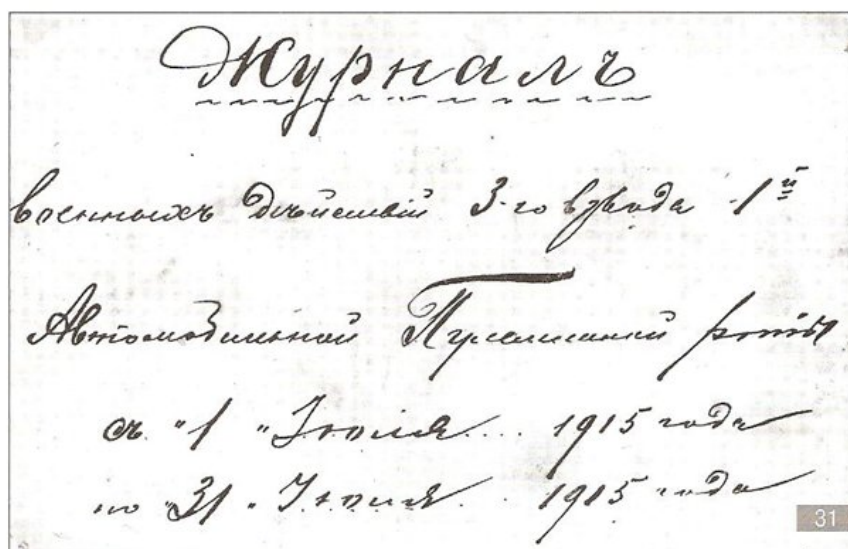 Журналъ
военныхъ дѣйствій 3-го взвода 1й
Автомобильной Пулеметной роты
съ "1" Іюля 1915 года
по "31" Іюля 1915 года
31